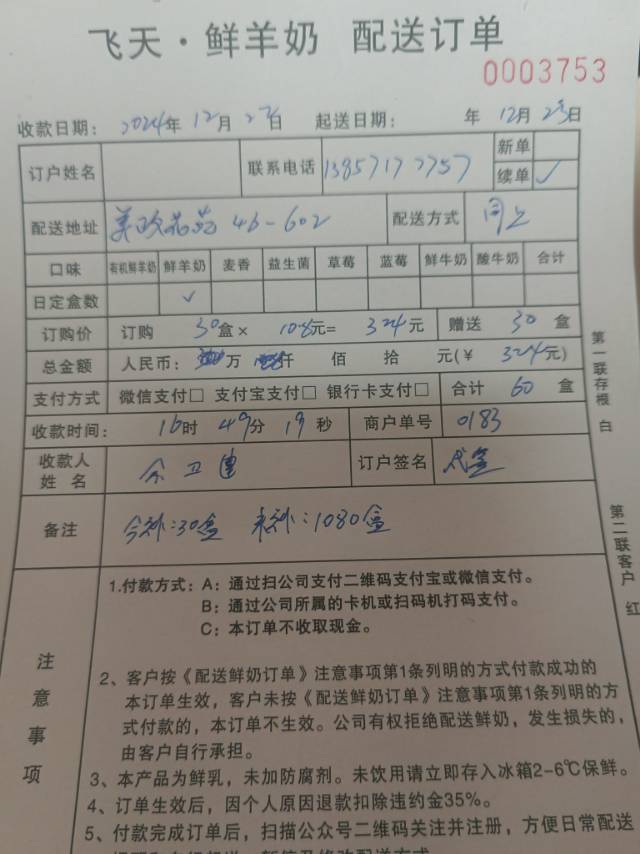 飞天·鲜羊奶 配送订单
0003753
收款日期: 2024年 12月 23日 起送日期: 年 12月 23日
订户姓名 联系电话 13857177757 新单
续单 ✓
配送地址 美欧花苑 46-602 配送方式 同上
口味 有机鲜羊奶 鲜羊奶 麦香 益生菌 草莓 蓝莓 鲜牛奶 酸牛奶 合计
日定盒数 ✓
订购价 订购 30盒× 10.8元= 324元 赠送 30 盒
总金额 人民币: 万 仟 佰 拾 元(¥ 324元)
支付方式 微信支付□ 支付宝支付□ 银行卡支付□ 合计 60 盒
收款时间: 16时 49分 19秒 商户单号 0183
收款人姓名 订户签名
备注 今补:30盒 未补:1080盒
第一联存根 白
第二联客户 红
注意事项
1.付款方式: A: 通过扫公司支付二维码支付宝或微信支付。
B: 通过公司所属的卡机或扫码机打码支付。
C: 本订单不收取现金。
2、客户按《配送鲜奶订单》注意事项第1条列明的方式付款成功的
本订单生效，客户未按《配送鲜奶订单》注意事项第1条列明的方
式付款的，本订单不生效。公司有权拒绝配送鲜奶，发生损失的，
由客户自行承担。
3、本产品为鲜乳，未加防腐剂。未饮用请立即存入冰箱2-6℃保鲜。
4、订单生效后，因个人原因退款扣除违约金35%。
5、付款完成订单后，扫描公众号二维码关注并注册，方便日常配送